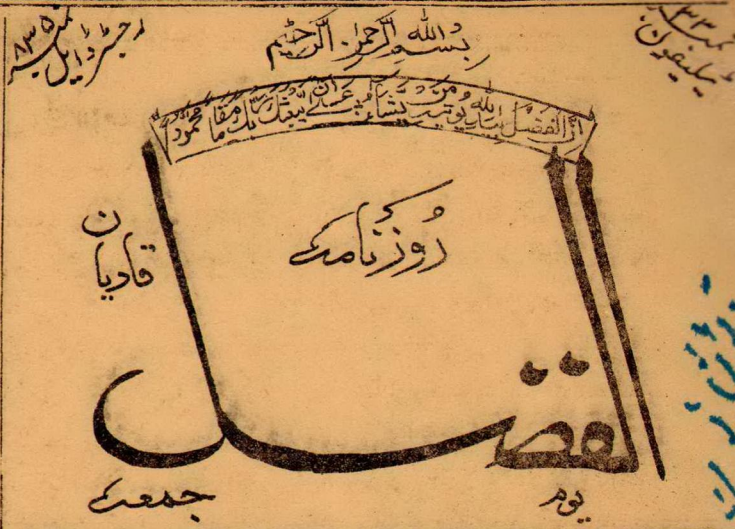 رجسٹرڈ ایل نمبر ۸۳۵
بسم اللہ الرحمٰن الرحیم
ٹیلیفون نمبر ۳۳
ان الفضل بید اللہ یوتیہ من یشاء عسٰی ان یبعثک ربک مقاما محمودا
روزنامہ
قادیان
الفضل
یوم
جمعہ